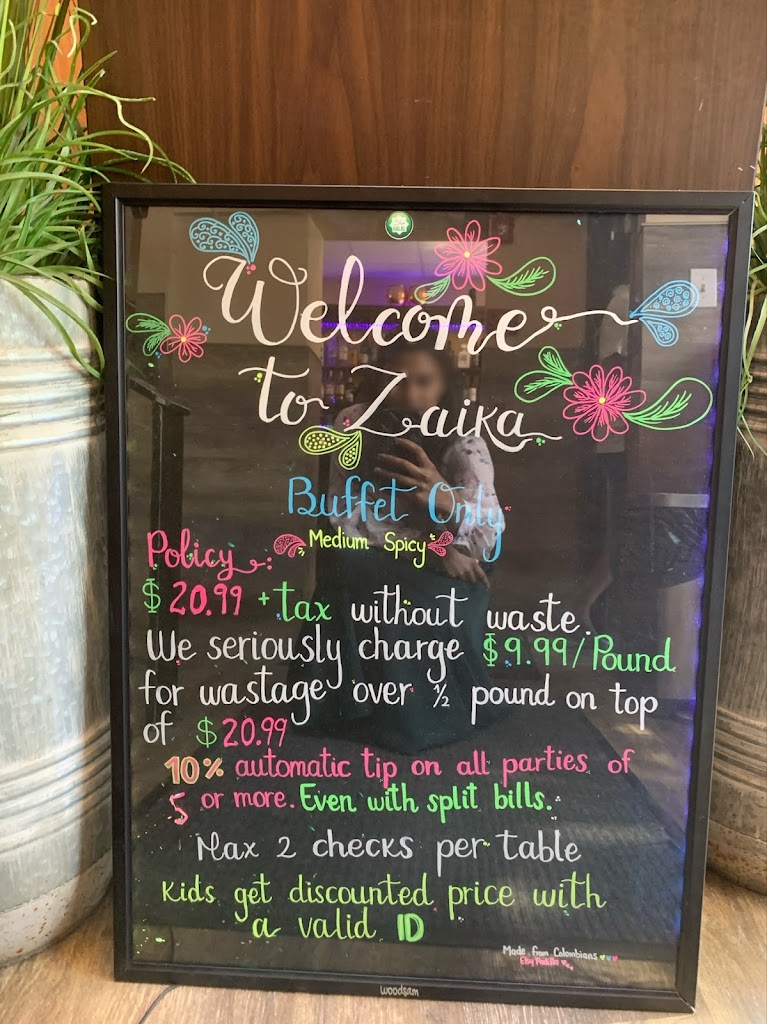 Welcome
to Zaika
Buffet Only
Medium Spicy
Policy:
$20.99 + tax without waste.
We seriously charge $9.99/Pound
for wastage over ½ pound on top
of $20.99
10% automatic tip on all parties of
5 or more. Even with split bills.
Max 2 checks per table
Kids get discounted price with
a valid ID
Made from Colombians
Elsy Padilla
woodsam